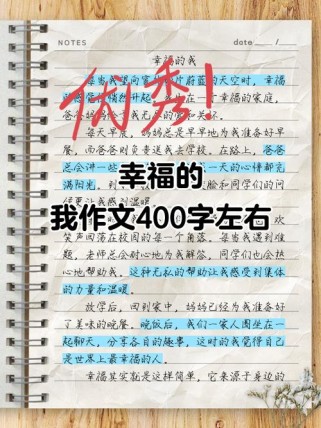 NOTES
date
幸福的我
每当我望向窗
片蔚蓝的天空时，幸福
在一个幸福的家庭，
爸爸妈妈
我无
和关怀。
每天早晨，妈妈总是早早地为我准备好早
餐，而爸爸则负责送我去学校。在路上，爸爸
总会讲一些
一天的心情都充
满阳光。到
脸和同学们的问
优秀！
幸福的
我作文400字左右
欢
笑声回荡在校园的每一个角落。每当我遇到难
题，老师总会耐心地为我解答，同学们也会热
心地帮助我。这种无私的帮助让我感受到集体
的力量和温暖。
放学后，回到家中，妈妈已经为我准备好
了美味的晚餐。晚饭后，我们一家人围坐在一
起聊天，分享各自的趣事，这时的我觉得自己
是世界上最幸福的人。
幸福其实就是这样简单，它来源于身边的